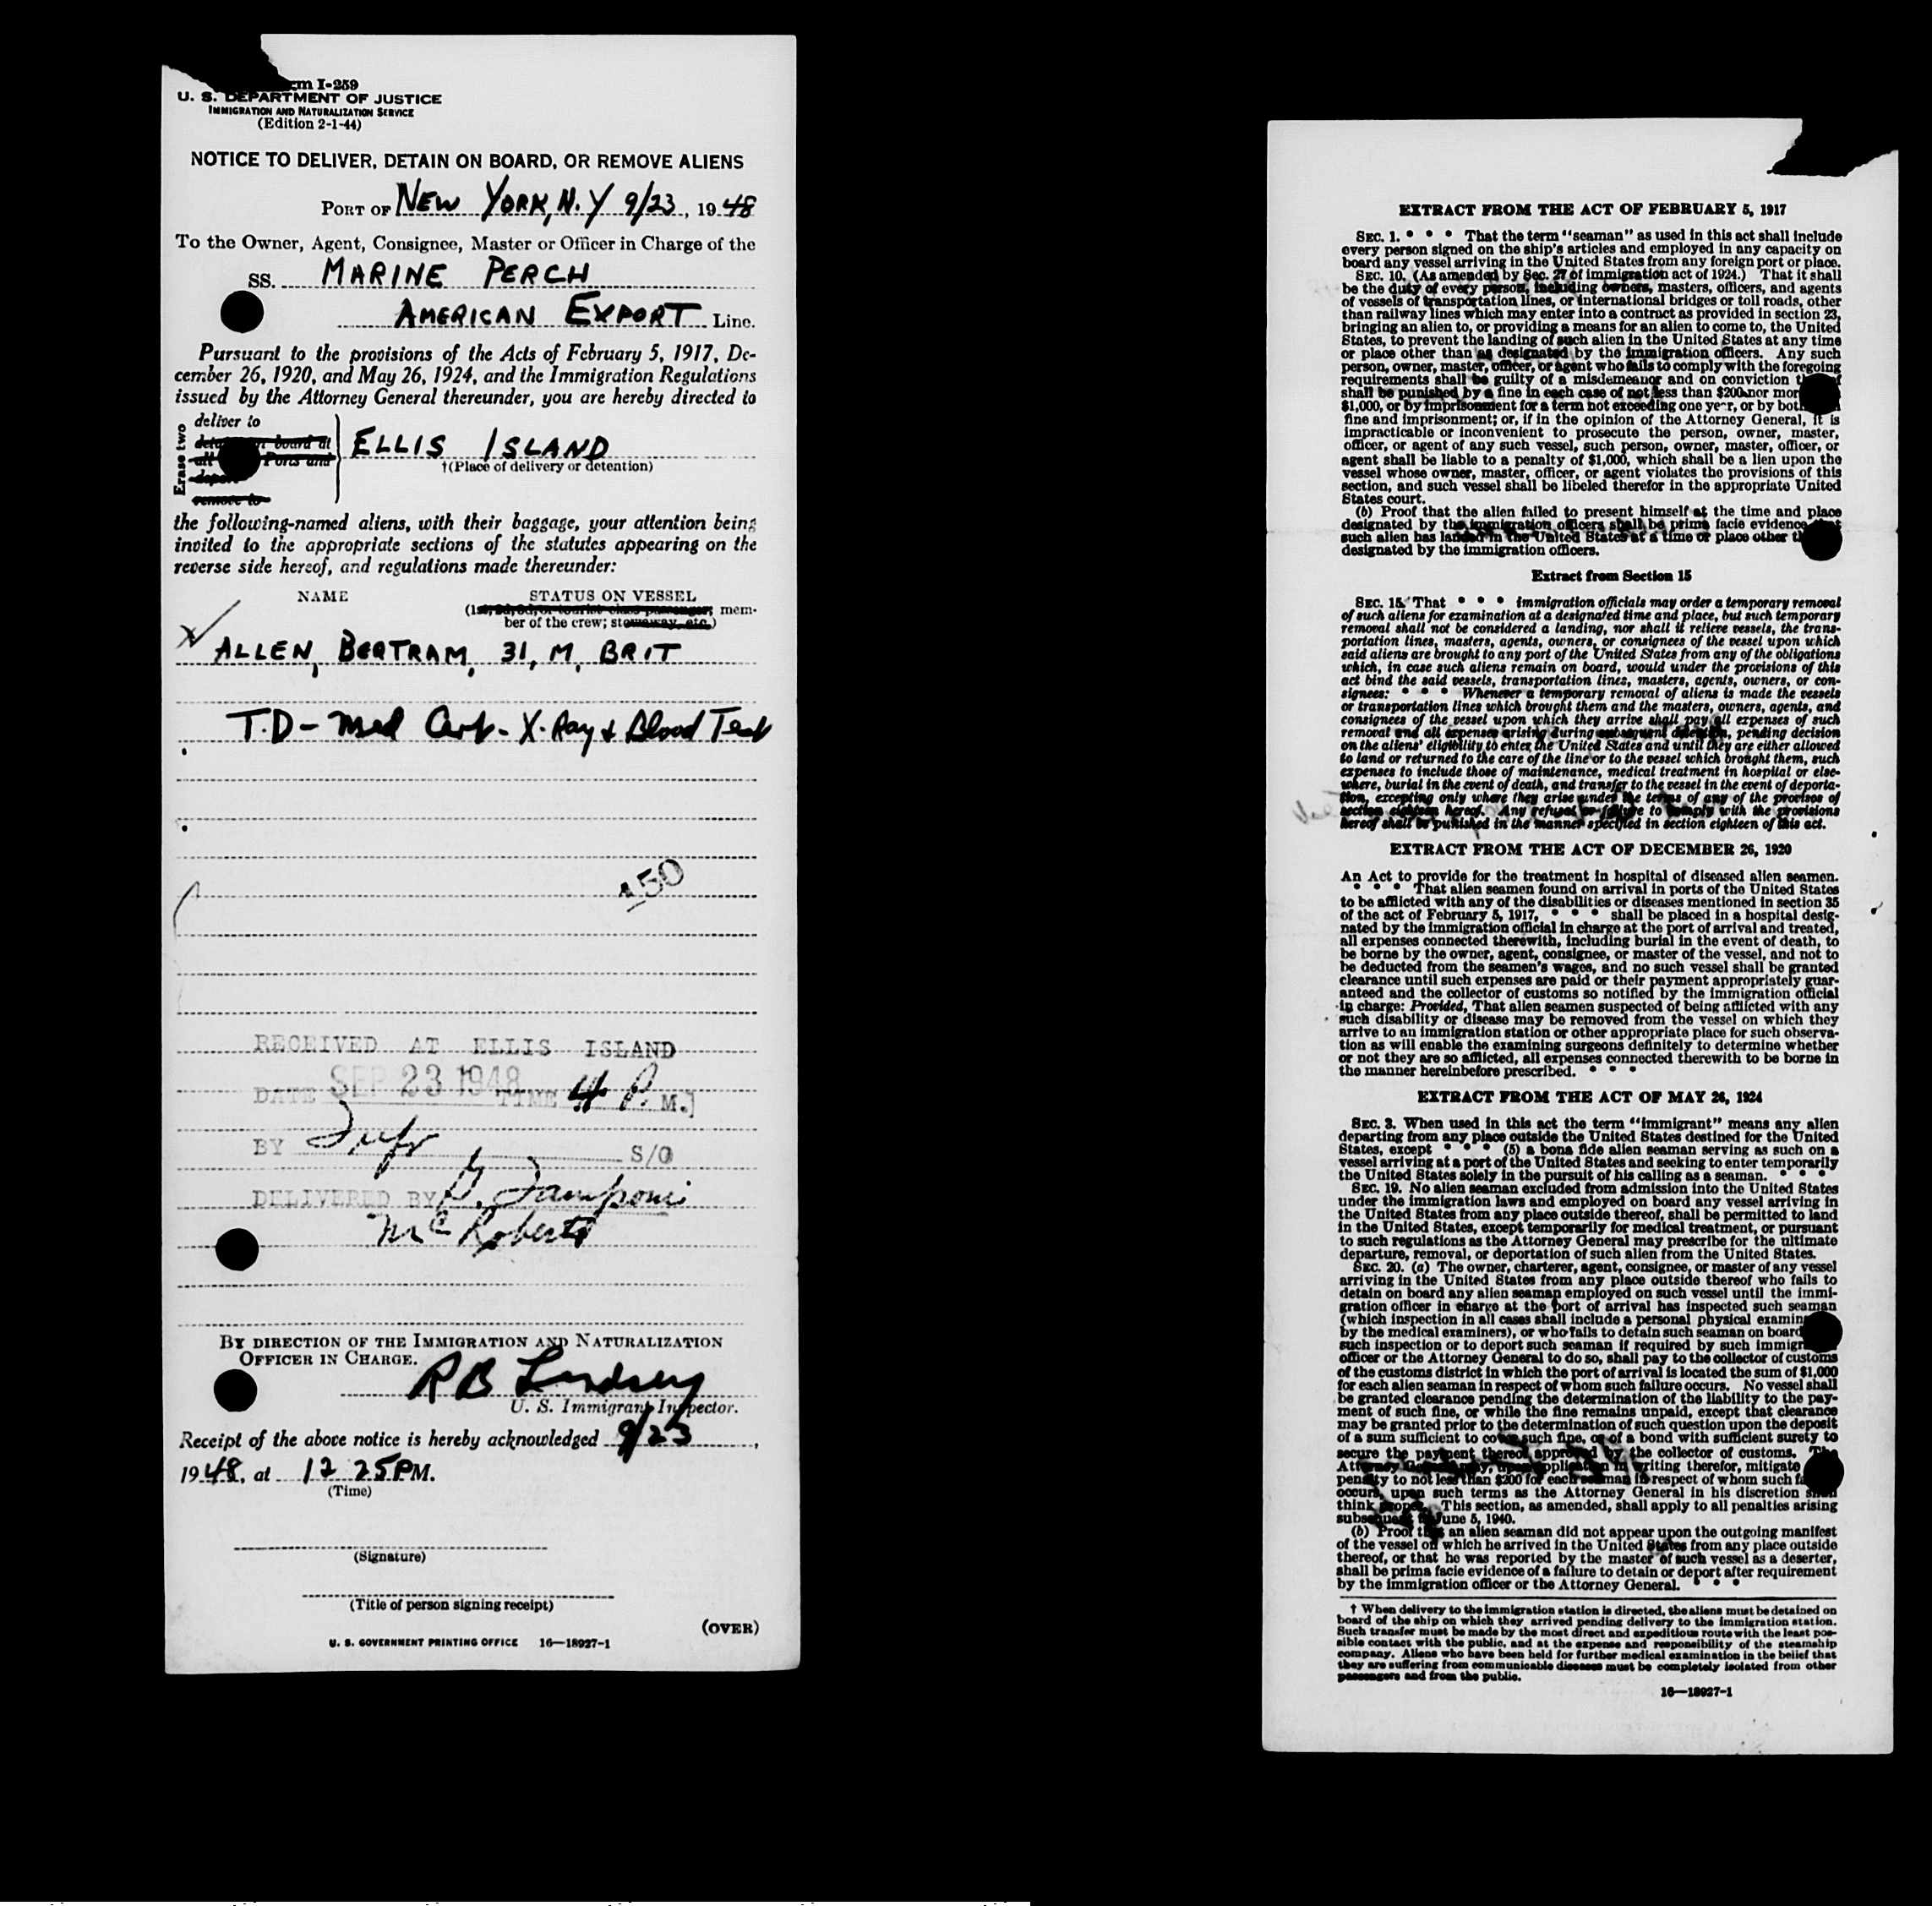 rm I-259
U. S. DEPARTMENT OF JUSTICE
IMMIGRATION AND NATURALIZATION SERVICE
(Edition 2-1-44)
NOTICE TO DELIVER, DETAIN ON BOARD, OR REMOVE ALIENS
PORT OF NEW YORK, N.Y 9/23, 1948
To the Owner, Agent, Consignee, Master or Officer in Charge of the
SS. MARINE PERCH
AMERICAN EXPORT Line.
Pursuant to the provisions of the Acts of February 5, 1917, De-
cember 26, 1920, and May 26, 1924, and the Immigration Regulations
issued by the Attorney General thereunder, you are hereby directed to
Erase two
deliver to
board at
Ports and
remove to
ELLIS ISLAND
†(Place of delivery or detention)
the following-named aliens, with their baggage, your attention being
invited to the appropriate sections of the statutes appearing on the
reverse side hereof, and regulations made thereunder:
NAME STATUS ON VESSEL
(1st, 2d, 3d, or tourist class passenger; mem-
ber of the crew; stowaway, etc.)
ALLEN, BERTRAM, 31, M, BRIT
T.D - Med Cert - X-Ray & Blood Test
150
RECEIVED AT ELLIS ISLAND
DATE SEP 23 1948 TIME 4 P. M.
BY S/O
DELIVERED BY
McRoberts
BY DIRECTION OF THE IMMIGRATION AND NATURALIZATION
OFFICER IN CHARGE.
RB Lindsey
U. S. Immigrant Inspector.
Receipt of the above notice is hereby acknowledged 9/23,
1948, at 12 25 PM.
(Time)
(Signature)
(Title of person signing receipt)
(OVER)
U. S. GOVERNMENT PRINTING OFFICE 16—18927-1
EXTRACT FROM THE ACT OF FEBRUARY 5, 1917
SEC. 1. * * * That the term "seaman" as used in this act shall include
every person signed on the ship's articles and employed in any capacity on
board any vessel arriving in the United States from any foreign port or place.
SEC. 10. (As amended by Sec. 27 of immigration act of 1924.) That it shall
be the duty of every person, including owners, masters, officers, and agents
of vessels of transportation lines, or international bridges or toll roads, other
than railway lines which may enter into a contract as provided in section 23,
bringing an alien to, or providing a means for an alien to come to, the United
States, to prevent the landing of such alien in the United States at any time
or place other than as designated by the immigration officers. Any such
person, owner, master, officer, or agent who fails to comply with the foregoing
requirements shall be guilty of a misdemeanor and on conviction
shall be punished by a fine in each case of not less than $200 nor mor
$1,000, or by imprisonment for a term not exceeding one year, or by bot
fine and imprisonment; or, if in the opinion of the Attorney General, it is
impracticable or inconvenient to prosecute the person, owner, master,
officer, or agent of any such vessel, such person, owner, master, officer, or
agent shall be liable to a penalty of $1,000, which shall be a lien upon the
vessel whose owner, master, officer, or agent violates the provisions of this
section, and such vessel shall be libeled therefor in the appropriate United
States court.
(b) Proof that the alien failed to present himself at the time and place
designated by the immigration officers shall be prima facie evidence that
such alien has landed in the United States at a time or place other
designated by the immigration officers.
Extract from Section 15
SEC. 15. That * * * immigration officials may order a temporary removal
of such aliens for examination at a designated time and place, but such temporary
removal shall not be considered a landing, nor shall it relieve vessels, the trans-
portation lines, masters, agents, owners, or consignees of the vessel upon which
said aliens are brought to any port of the United States from any of the obligations
which, in case such aliens remain on board, would under the provisions of this
act bind the said vessels, transportation lines, masters, agents, owners, or con-
signees: * * * Whenever a temporary removal of aliens is made the vessels
or transportation lines which brought them and the masters, owners, agents, and
consignees of the vessel upon which they arrive shall pay all expenses of such
removal and all expenses arising during subsequent detention, pending decision
on the aliens' eligibility to enter the United States and until they are either allowed
to land or returned to the care of the line or to the vessel which brought them, such
expenses to include those of maintenance, medical treatment in hospital or else-
where, burial in the event of death, and transfer to the vessel in the event of deporta-
tion, excepting only where they arise under the terms of any of the provisos of
section eighteen hereof. Any refusal or failure to comply with the provisions
hereof shall be punished in the manner specified in section eighteen of this act.
EXTRACT FROM THE ACT OF DECEMBER 26, 1920
An Act to provide for the treatment in hospital of diseased alien seamen.
* * * That alien seamen found on arrival in ports of the United States
to be afflicted with any of the disabilities or diseases mentioned in section 35
of the act of February 5, 1917, * * * shall be placed in a hospital desig-
nated by the immigration official in charge at the port of arrival and treated,
all expenses connected therewith, including burial in the event of death, to
be borne by the owner, agent, consignee, or master of the vessel, and not to
be deducted from the seamen's wages, and no such vessel shall be granted
clearance until such expenses are paid or their payment appropriately guar-
anteed and the collector of customs so notified by the immigration official
in charge: Provided, That alien seamen suspected of being afflicted with any
such disability or disease may be removed from the vessel on which they
arrive to an immigration station or other appropriate place for such observa-
tion as will enable the examining surgeons definitely to determine whether
or not they are so afflicted, all expenses connected therewith to be borne in
the manner hereinbefore prescribed. * * *
EXTRACT FROM THE ACT OF MAY 26, 1924
SEC. 3. When used in this act the term "immigrant" means any alien
departing from any place outside the United States destined for the United
States, except * * * (5) a bona fide alien seaman serving as such on a
vessel arriving at a port of the United States and seeking to enter temporarily
the United States solely in the pursuit of his calling as a seaman. * * *
SEC. 19. No alien seaman excluded from admission into the United States
under the immigration laws and employed on board any vessel arriving in
the United States from any place outside thereof, shall be permitted to land
in the United States, except temporarily for medical treatment, or pursuant
to such regulations as the Attorney General may prescribe for the ultimate
departure, removal, or deportation of such alien from the United States.
SEC. 20. (a) The owner, charterer, agent, consignee, or master of any vessel
arriving in the United States from any place outside thereof who fails to
detain on board any alien seaman employed on such vessel until the immi-
gration officer in charge at the port of arrival has inspected such seaman
(which inspection in all cases shall include a personal physical examin
by the medical examiners), or who fails to detain such seaman on board
such inspection or to deport such seaman if required by such immigr
officer or the Attorney General to do so, shall pay to the collector of customs
of the customs district in which the port of arrival is located the sum of $1,000
for each alien seaman in respect of whom such failure occurs. No vessel shall
be granted clearance pending the determination of the liability to the pay-
ment of such fine, or while the fine remains unpaid, except that clearance
may be granted prior to the determination of such question upon the deposit
of a sum sufficient to cover such fine, or of a bond with sufficient surety to
secure the payment thereof approved by the collector of customs. The
Attorney General may, upon application in writing therefor, mitigate
penalty to not less than $200 for each seaman in respect of whom such fa
occurs, upon such terms as the Attorney General in his discretion shall
think proper. This section, as amended, shall apply to all penalties arising
subsequent to June 5, 1940.
(b) Proof that an alien seaman did not appear upon the outgoing manifest
of the vessel on which he arrived in the United States from any place outside
thereof, or that he was reported by the master of such vessel as a deserter,
shall be prima facie evidence of a failure to detain or deport after requirement
by the immigration officer or the Attorney General. * * *
† When delivery to the immigration station is directed, the aliens must be detained on
board of the ship on which they arrived pending delivery to the immigration station.
Such transfer must be made by the most direct and expeditious route with the least pos-
sible contact with the public, and at the expense and responsibility of the steamship
company. Aliens who have been held for further medical examination in the belief that
they are suffering from communicable diseases must be completely isolated from other
passengers and from the public.
16—18927-1